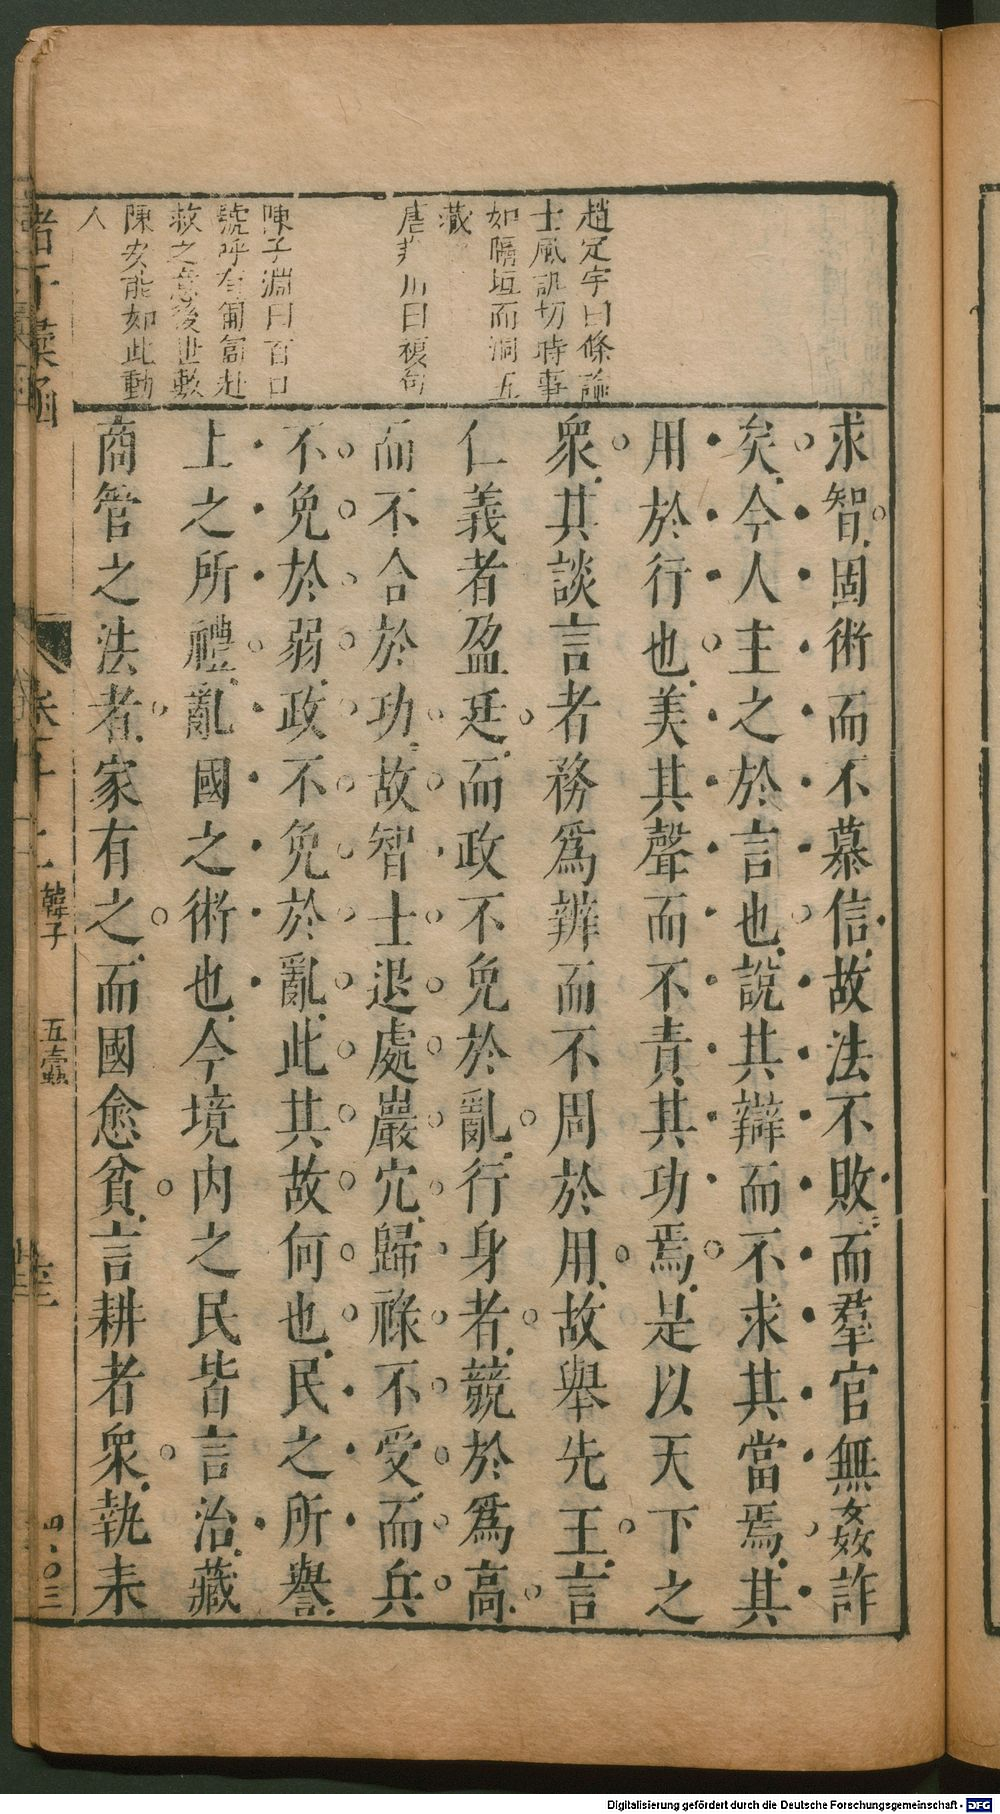 趙定宇曰條論
士風譏切時事
如隔垣而洞五
藏
唐荊川曰複句
陳子淵曰百口
號呼有匍匐赴
救之意後世歎
陳安能如此動
人
求智固術而不慕信故法不敗而羣官無姦詐
矣今人主之於言也說其辯而不求其當焉其
用於行也美其聲而不責其功焉是以天下之
衆其談言者務爲辨而不周於用故舉先王言
仁義者盈廷而政不免於亂行身者競於爲高
而不合於功故智士退處巖穴歸祿不受而兵
不免於弱政不免於亂此其故何也民之所譽
上之所禮亂國之術也今境内之民皆言治藏
商管之法者家有之而國愈貧言耕者衆執耒
諸子彙函
卷
韓子
五蠹
四〇三
Digitalisierung gefördert durch die Deutsche Forschungsgemeinschaft - DFG